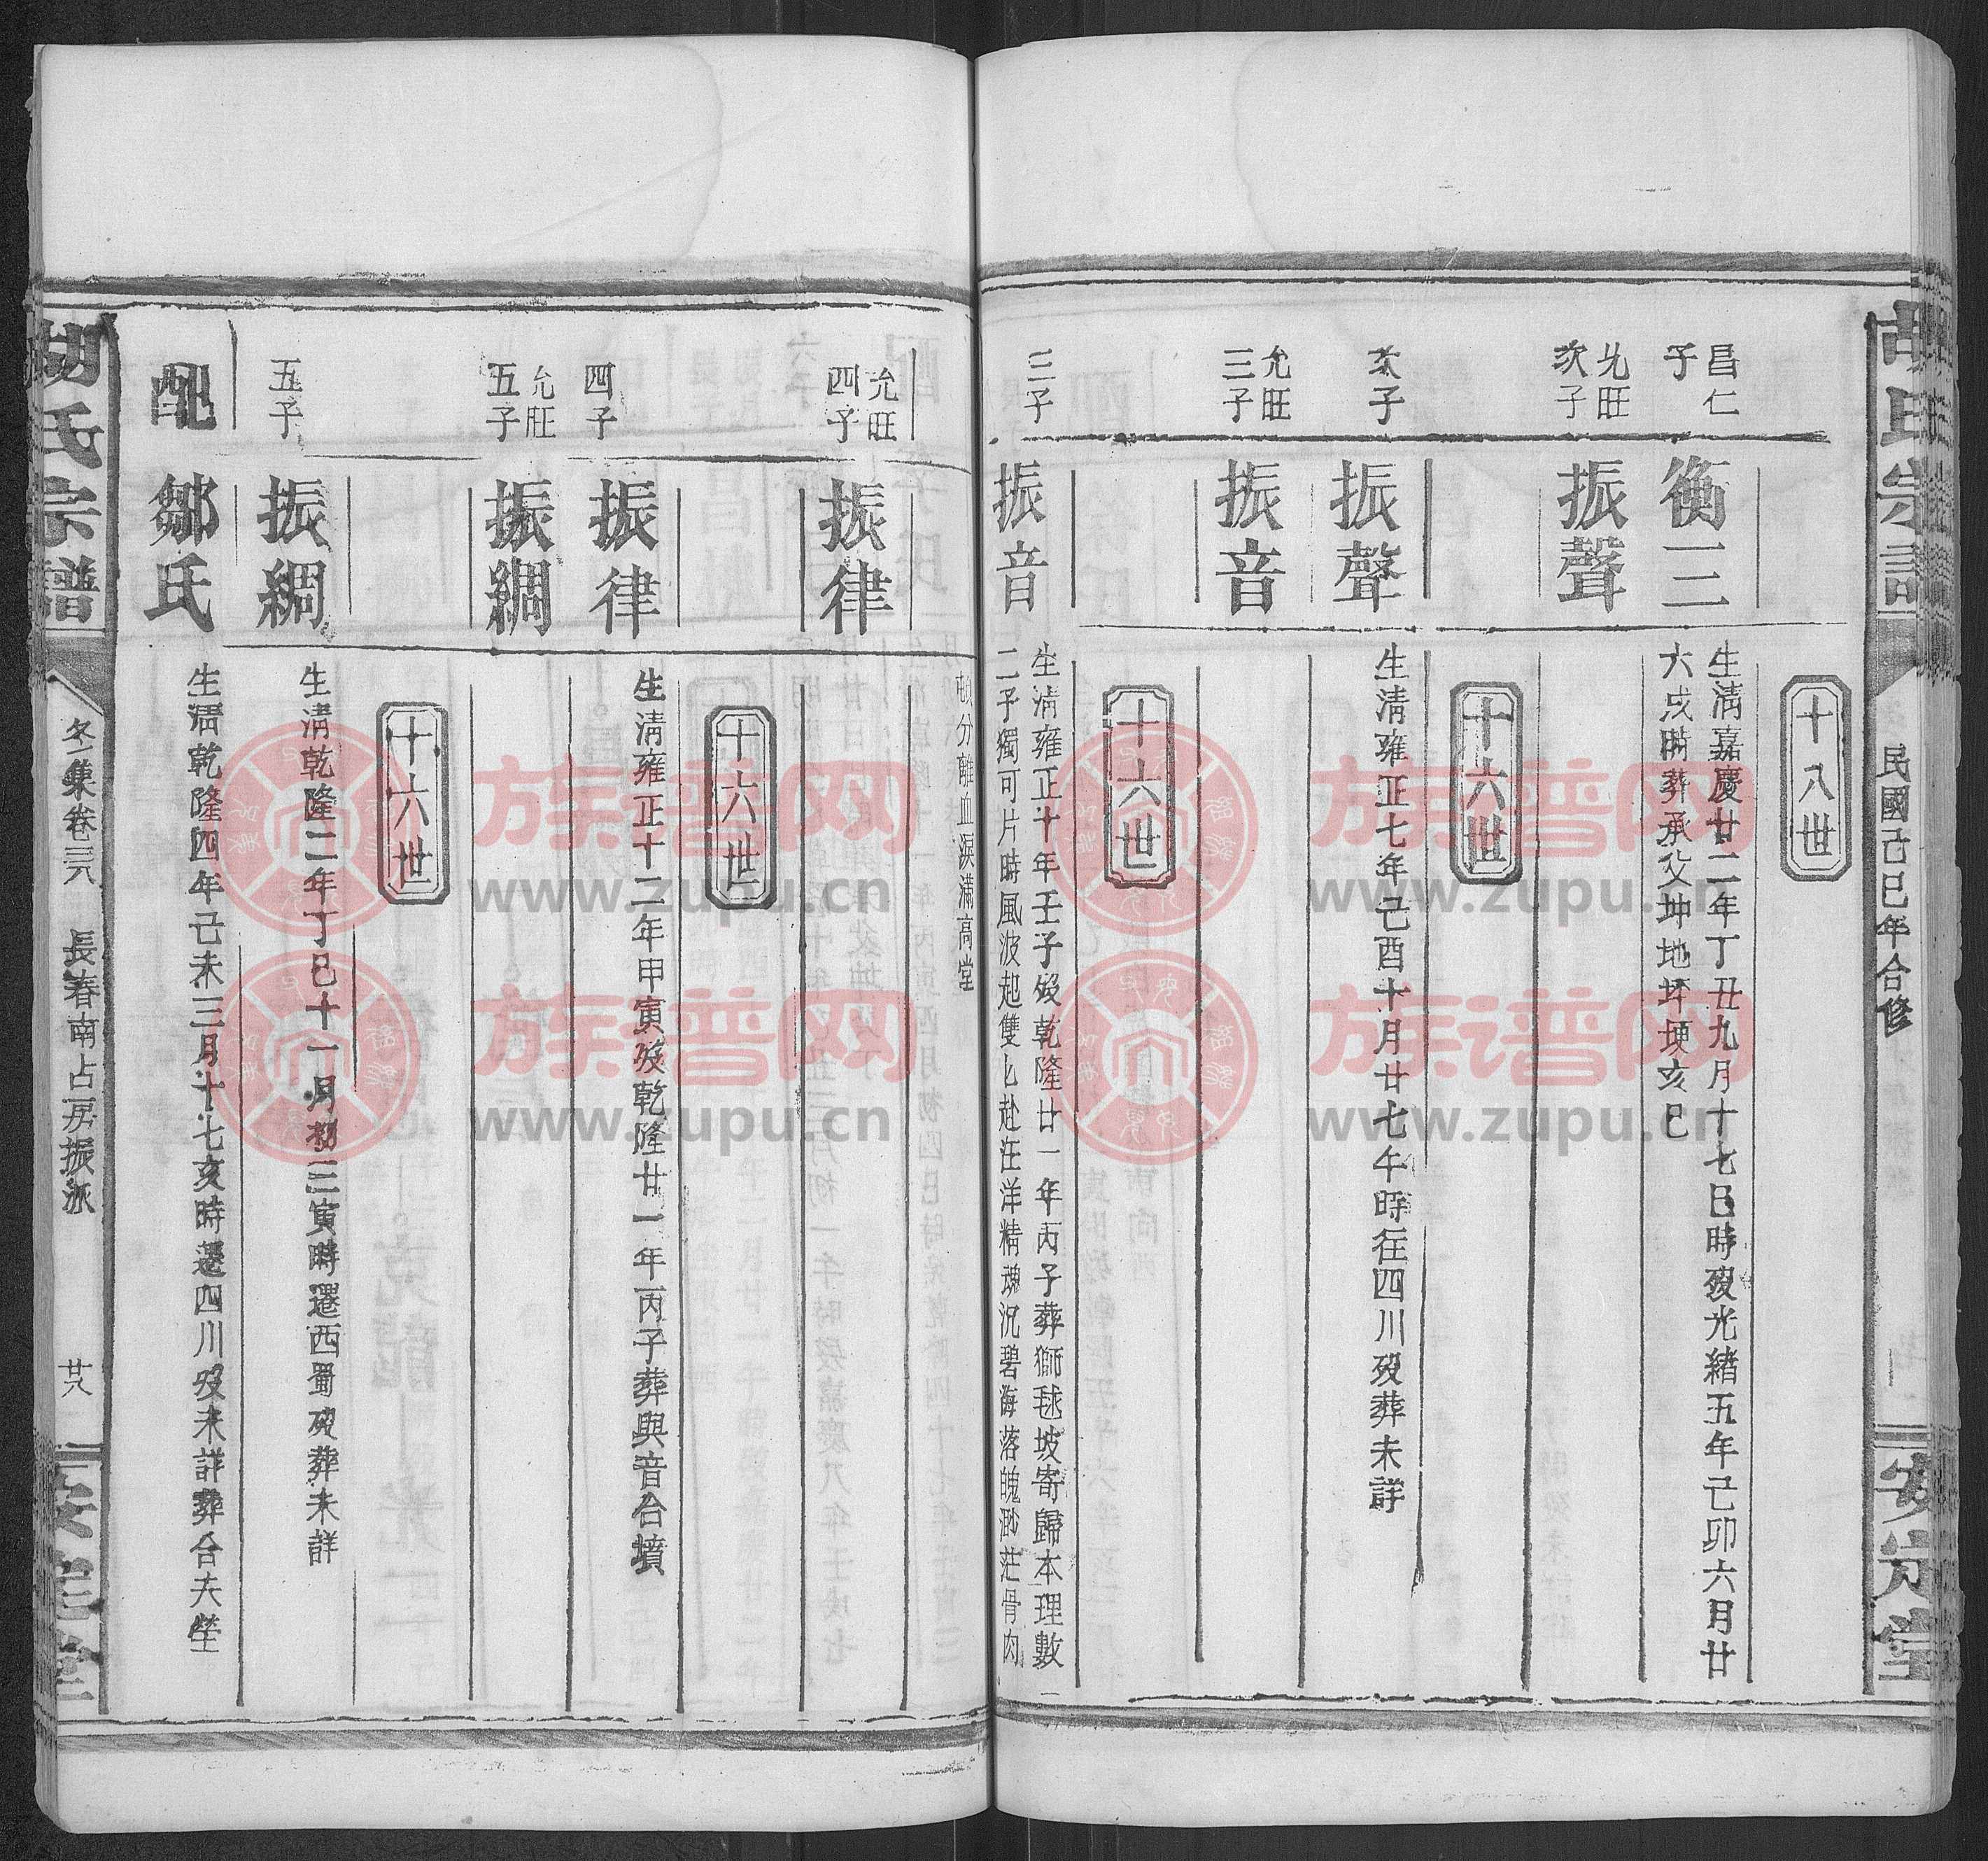 胡氏宗譜
民國己巳年合修
安定堂
十八世
昌仁
子
衡三
生清嘉慶廿二年丁丑九月十七巳時歿光緒五年己卯六月廿
六戌時葬承父坤地坪埂亥巳
允旺
次子
振聲
十六世
次子
振聲
生清雍正七年己酉十月廿七午時往四川歿葬未詳
允旺
三子
振音
十六世
三子
振音
生清雍正十年壬子歿乾隆廿一年丙子葬獅毬坡寄歸本理數一
二子獨可片時風波起雙匕赴汪洋精魂況碧海落魄渺茫骨肉
頓分離血淚滿高堂
允旺
四子
振律
十六世
四子
振律
生清雍正十二年甲寅歿乾隆廿一年丙子葬與音合墳
允旺
五子
振綢
十六世
五子
振綢
生清乾隆二年丁巳十一月初三寅時遷西蜀歿葬未詳
配
鄒氏
生清乾隆四年己未三月十七亥時遷四川歿未詳葬合夫塋
胡氏宗譜
冬集卷三六
長春南占房振派
廿八
安定堂
族谱网
www.zupu.cn
族谱网
www.zupu.cn
族谱网
www.zupu.cn
族谱网
www.zupu.cn